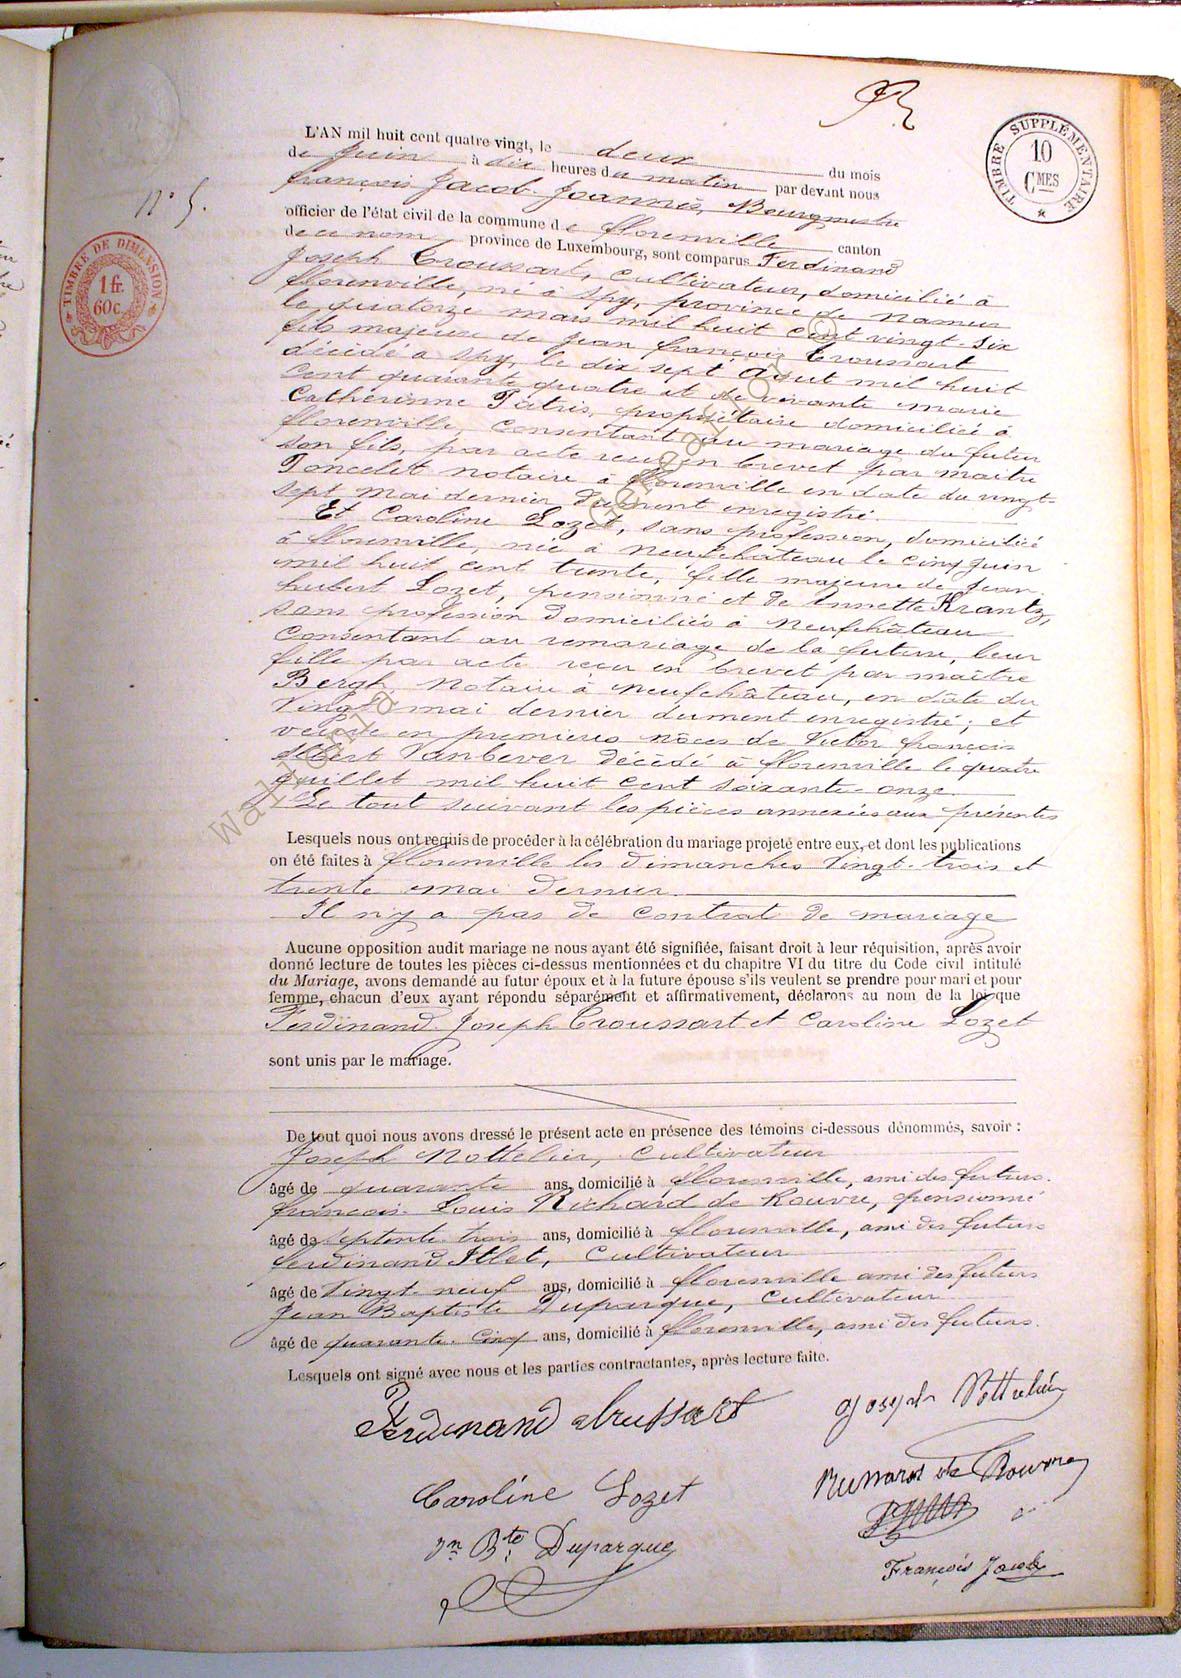 N° 5.
TIMBRE DE DIMENSION
1 fr.
60 c.
TIMBRE SUPPLÉMENTAIRE
10
CMES
L'AN mil huit cent quatre vingt, le deux du mois
de Juin à dix heures du matin par devant nous
françois Jacob Joannès, Bourgmestre
officier de l'état civil de la commune de florenville canton
de ce nom province de Luxembourg, sont comparus Ferdinand
Joseph Troussart, cultivateur, domicilié à
florenville, né à Spy, province de Namur
le quatorze mars mil huit cent vingt-six
fils majeur de Jean françois Troussart
décédé à Spy, le dix sept Aout mil huit
cent quarante quatre et de vivante marie
Catherinne Patris, propriétaire domiciliée à
florenville, consentant au mariage du futur
son fils, par acte reçu en brevet par maitre
Poncelet notaire à florenville en date du vingt-
sept mai dernier dument enregistré.
Et Caroline Lozet, sans profession, domiciliée
à florenville, née à Neufchâteau le cinq juin
mil huit cent trente, fille majeure de Jean
hubert Lozet, pensionné et de Annette Krantz,
sans profession domiciliés à Neufchâteau
Consentant au remariage de la future, leur
fille par acte reçu en brevet par maître
Bergh, Notaire à Neufchâteau, en date du
Vingt mai dernier dument enregistré; et
veuve en premieres nôces de Victor françois
Albert Vanbever décédé à florenville le quatre
Juillet mil huit cent soixante-onze.
Le tout suivant les pièces annexées aux présentes
Lesquels nous ont requis de procéder à la célébration du mariage projeté entre eux, et dont les publications
on été faites à florenville les dimanches Vingt-trois et
trente mai dernier.
Il n'y a pas de contrat de mariage
Aucune opposition audit mariage ne nous ayant été signifiée, faisant droit à leur réquisition, après avoir
donné lecture de toutes les pièces ci-dessus mentionnées et du chapitre VI du titre du Code civil intitulé
du Mariage, avons demandé au futur époux et à la future épouse s'ils veulent se prendre pour mari et pour
femme, chacun d'eux ayant répondu séparément et affirmativement, déclarons au nom de la loi que
Ferdinand Joseph Troussart et Caroline Lozet
sont unis par le mariage.
De tout quoi nous avons dressé le présent acte en présence des témoins ci-dessous dénommés, savoir :
Joseph Nottelier, Cultivateur
âgé de quarante ans, domicilié à florenville, ami des futurs.
françois Louis Richard de Rouvre, pensionné
âgé de septente trois ans, domicilié à florenville, ami des futurs
ferdinand Itlet, Cultivateur
âgé de Vingt neuf ans, domicilié à florenville ami des futurs
Jean Baptiste Duparque, Cultivateur
âgé de quarante-cinq ans, domicilié à florenville, ami des futurs.
Lesquels ont signé avec nous et les parties contractantes, après lecture faite.
Ferdinand
Joseph Nottelier
Caroline Lozet
de Rouvre
Jn Bte Duparque
François Jacob